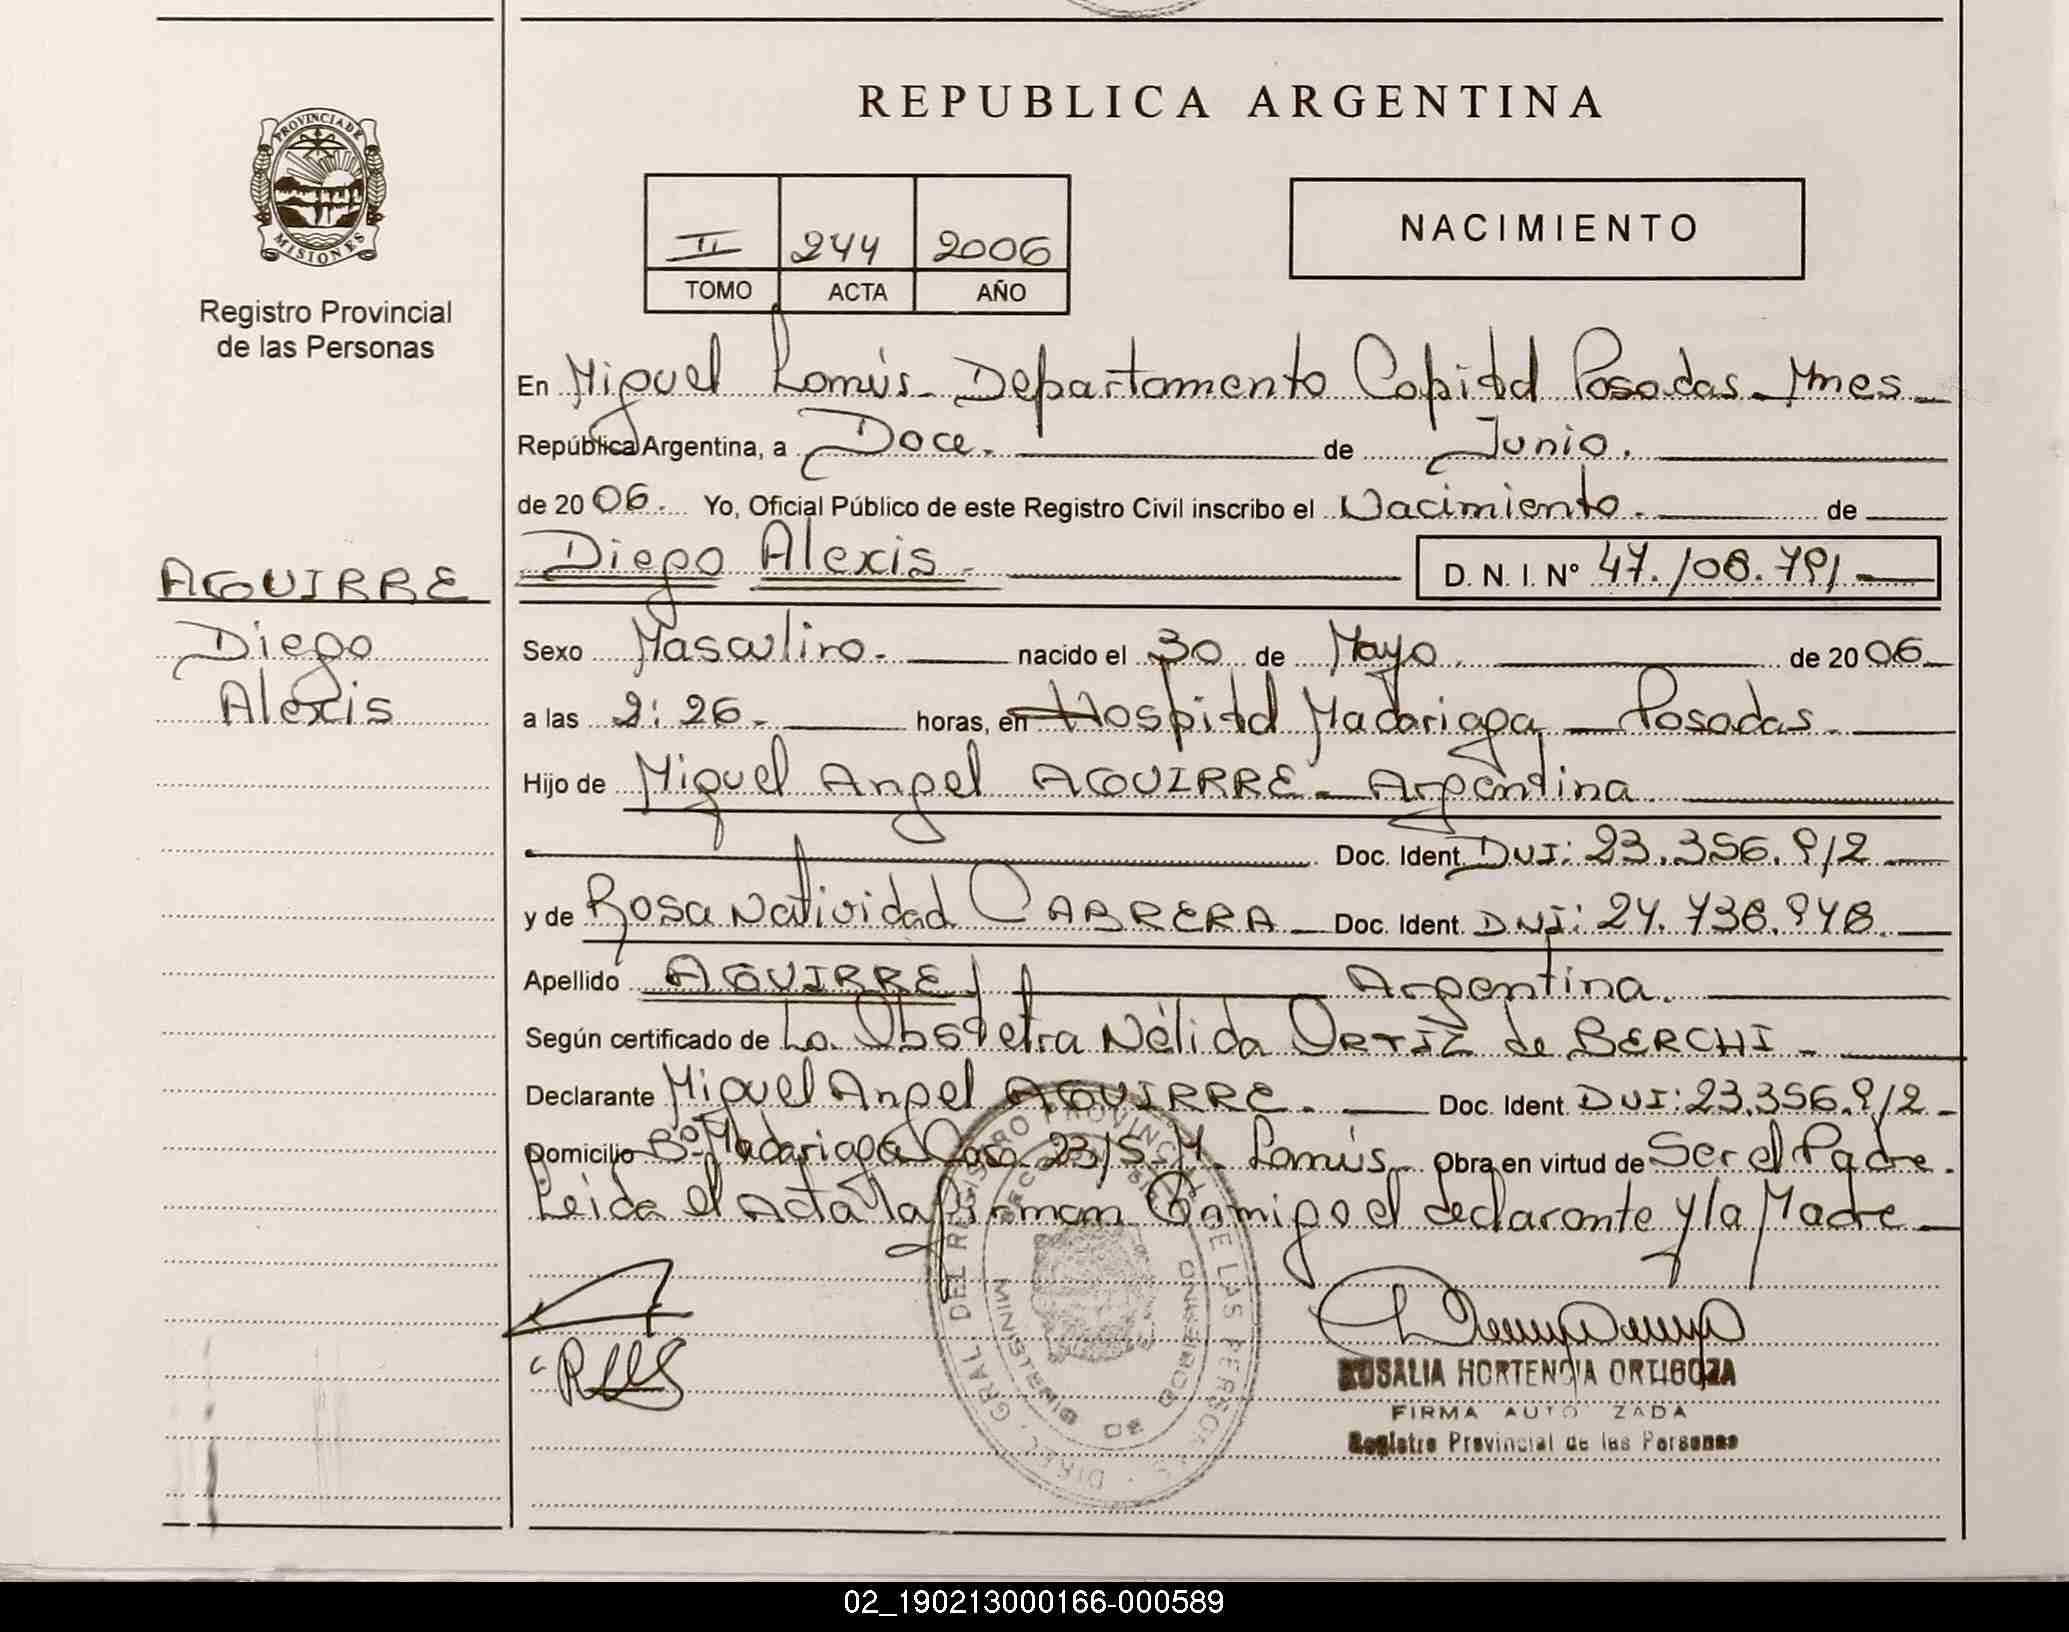 REPUBLICA ARGENTINA
PROVINCIA DE
MISIONES
Registro Provincial
de las Personas
II 244 2006
TOMO ACTA AÑO
NACIMIENTO
En Miguel Lanús - Departamento Capital Posadas - Mnes -
República Argentina, a Doce. de Junio.
de 2006. Yo, Oficial Público de este Registro Civil inscribo el Nacimiento. de
Diego Alexis - D. N. I. Nº 47.108.791
AGUIRRE
Diego
Alexis
Sexo Masculino. nacido el 30 de Mayo. de 2006
a las 2:26 - horas, en Hospital Madariaga - Posadas.
Hijo de Miguel Angel AGUIRRE - Argentina.
Doc. Ident. DNI: 23.356.912
y de Rosa Natividad CABRERA - Doc. Ident. DNI: 24.738.948.
Apellido AGUIRRE Argentina.
Según certificado de La Obstetra Nélida ORTIZ de BERCHI -
Declarante Miguel Angel AGUIRRE. Doc. Ident. DNI: 23.356.912 -
Domicilio Bº Madariaga Casa 23/5 - M. Lanús - Obra en virtud de Ser el Padre.
Leida el Acta la firman Conmigo el declarante y la Madre
DIREC. GRAL DEL REGISTRO PROVINCIAL DE LAS PERSONAS
MINISTERIO DE GOBIERNO
ROSALIA HORTENCIA ORTIGOZA
FIRMA AUTORIZADA
Registro Provincial de las Personas
02_190213000166-000589